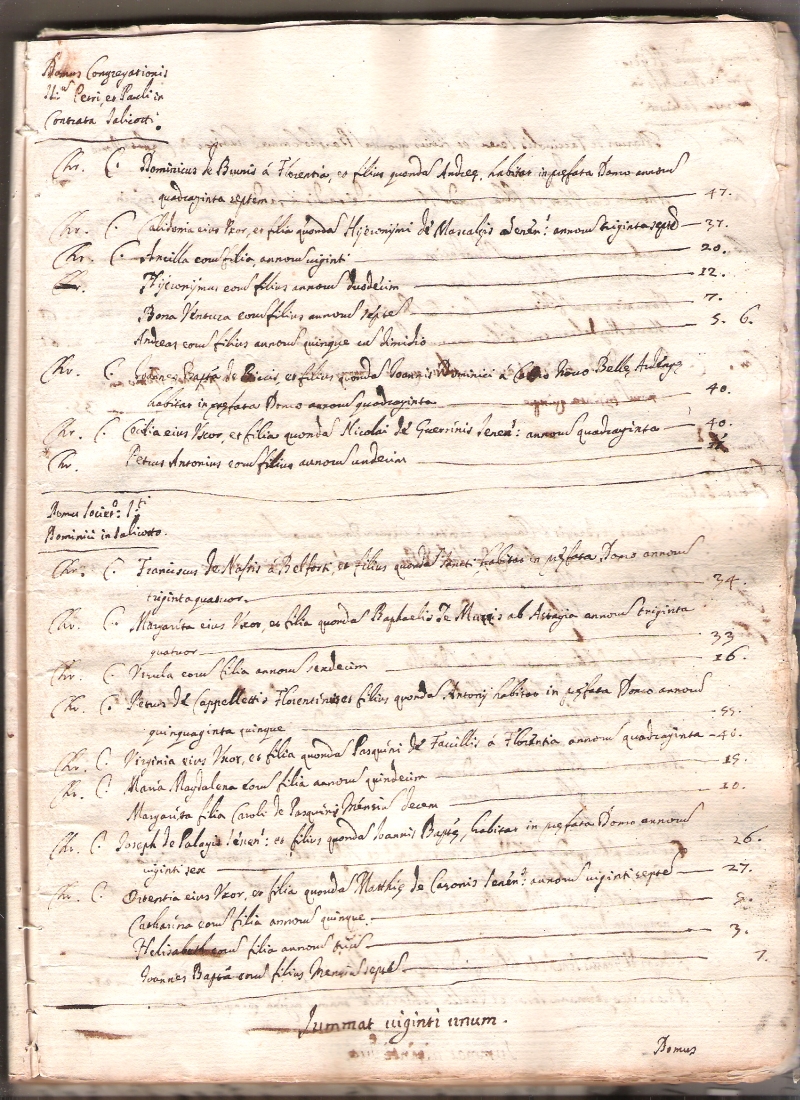 Domus Congregationis
Petri, et Pauli in
Contrata Salicotti.
Chr. C. Dominicus de Brunis á Florentia, et filius quonda Andreę, habitat in pręfata Domo annorum
quadraginta septem 47.
Chr. C. eius Uxor, et filia quonda Hyeronymi de Senen: annorum triginta septe 37.
Chr. C. Ancilla eorum filia, annorum uiginti 20.
Chr. Hyeronymus eorum filius annorum duodecim 12.
Bona Ventura eorum filius annorum septe 7.
Andreas eorum filius annorum quinque cu dimidio 5. 6.
Chr. C. Joannes Bapta de et filius quonda Joannis Dominici á
habitat in pręfata Domo annorum quadraginta 40.
Chr. C. Cecilia eius Uxor, et filia quonda Nicolai de Guerrinis Senen: annorum quadraginta 40.
Chr. Petrus Antonius eorum filius annorum undecim
Domus Societ: Sti
Dominici in Salicotto.
Chr. C. Franciscus de á Belforti, et filius quonda habitat in pręfata Domo annorum
triginta quatuor 34.
Chr. C. Margarita eius Uxor, et filia quonda Raphaelis de ab annorum triginta
quatuor 33
Chr. C. Ursula eorum filia annorum sexdecim 16.
Chr. C. Petrus de Cappellettis Florentinus et filius quonda Antonij habitat in pręfata Domo annorum
quinquaginta quinque 55.
Chr. C. Virginia eius Uxor, et filia quonda Pasquini de á Florentia annorum quadraginta 40.
Chr. C. Maria Magdalena eorum filia annorum quindecim 15.
Margarita filia Caroli de Pasquinis Mensiu decem 10.
Chr. C. Joseph de Senen: et filius quonda Joannis Baptę, habitat in pręfata Domo annorum
uiginti sex 26.
Chr. C. Ortentia eius Uxor, et filia quonda Matthię de Senen: annorum uiginti septe 27.
Catharina eorum filia annorum quinque 5.
Helisabeth eorum filia annorum triu 3.
Joannes Bapta eorum filius Mensiu septe 7.
Summat uiginti unum.
Domus